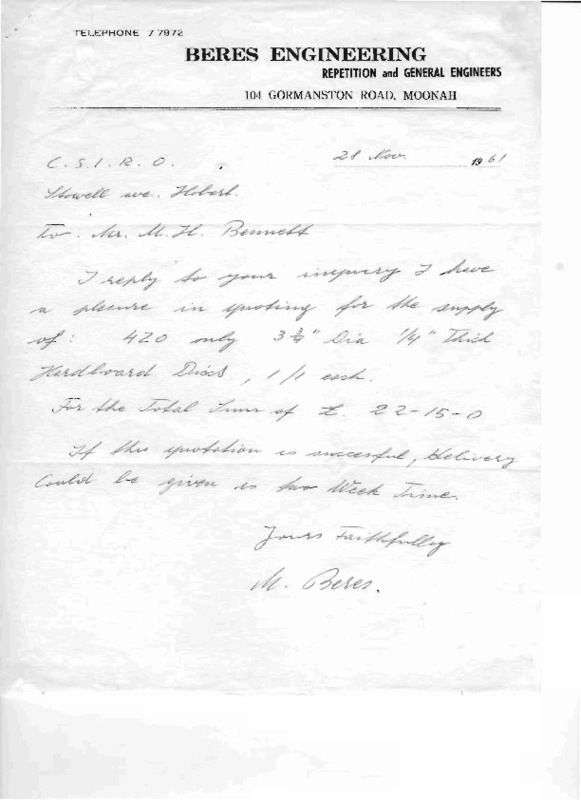 TELEPHONE 7 7972
BERES ENGINEERING
REPETITION and GENERAL ENGINEERS
104 GORMANSTON ROAD, MOONAH
28 Nov. 1961
C.S.I.R.O.
Stowell ave. Hobart.
to. Mr. M.H. Bennett
I reply to your inquiry I have
a plesure in quoting for the supply
of: 420 only 3 3/4" Dia 1/4" Thick
Hardboard Discs, 1/1 each.
For the Total Sum of £. 22-15-0
If this quotation is succesful, delivery
Could be given in two Week Time.
Yours Faithfully
M. Beres.